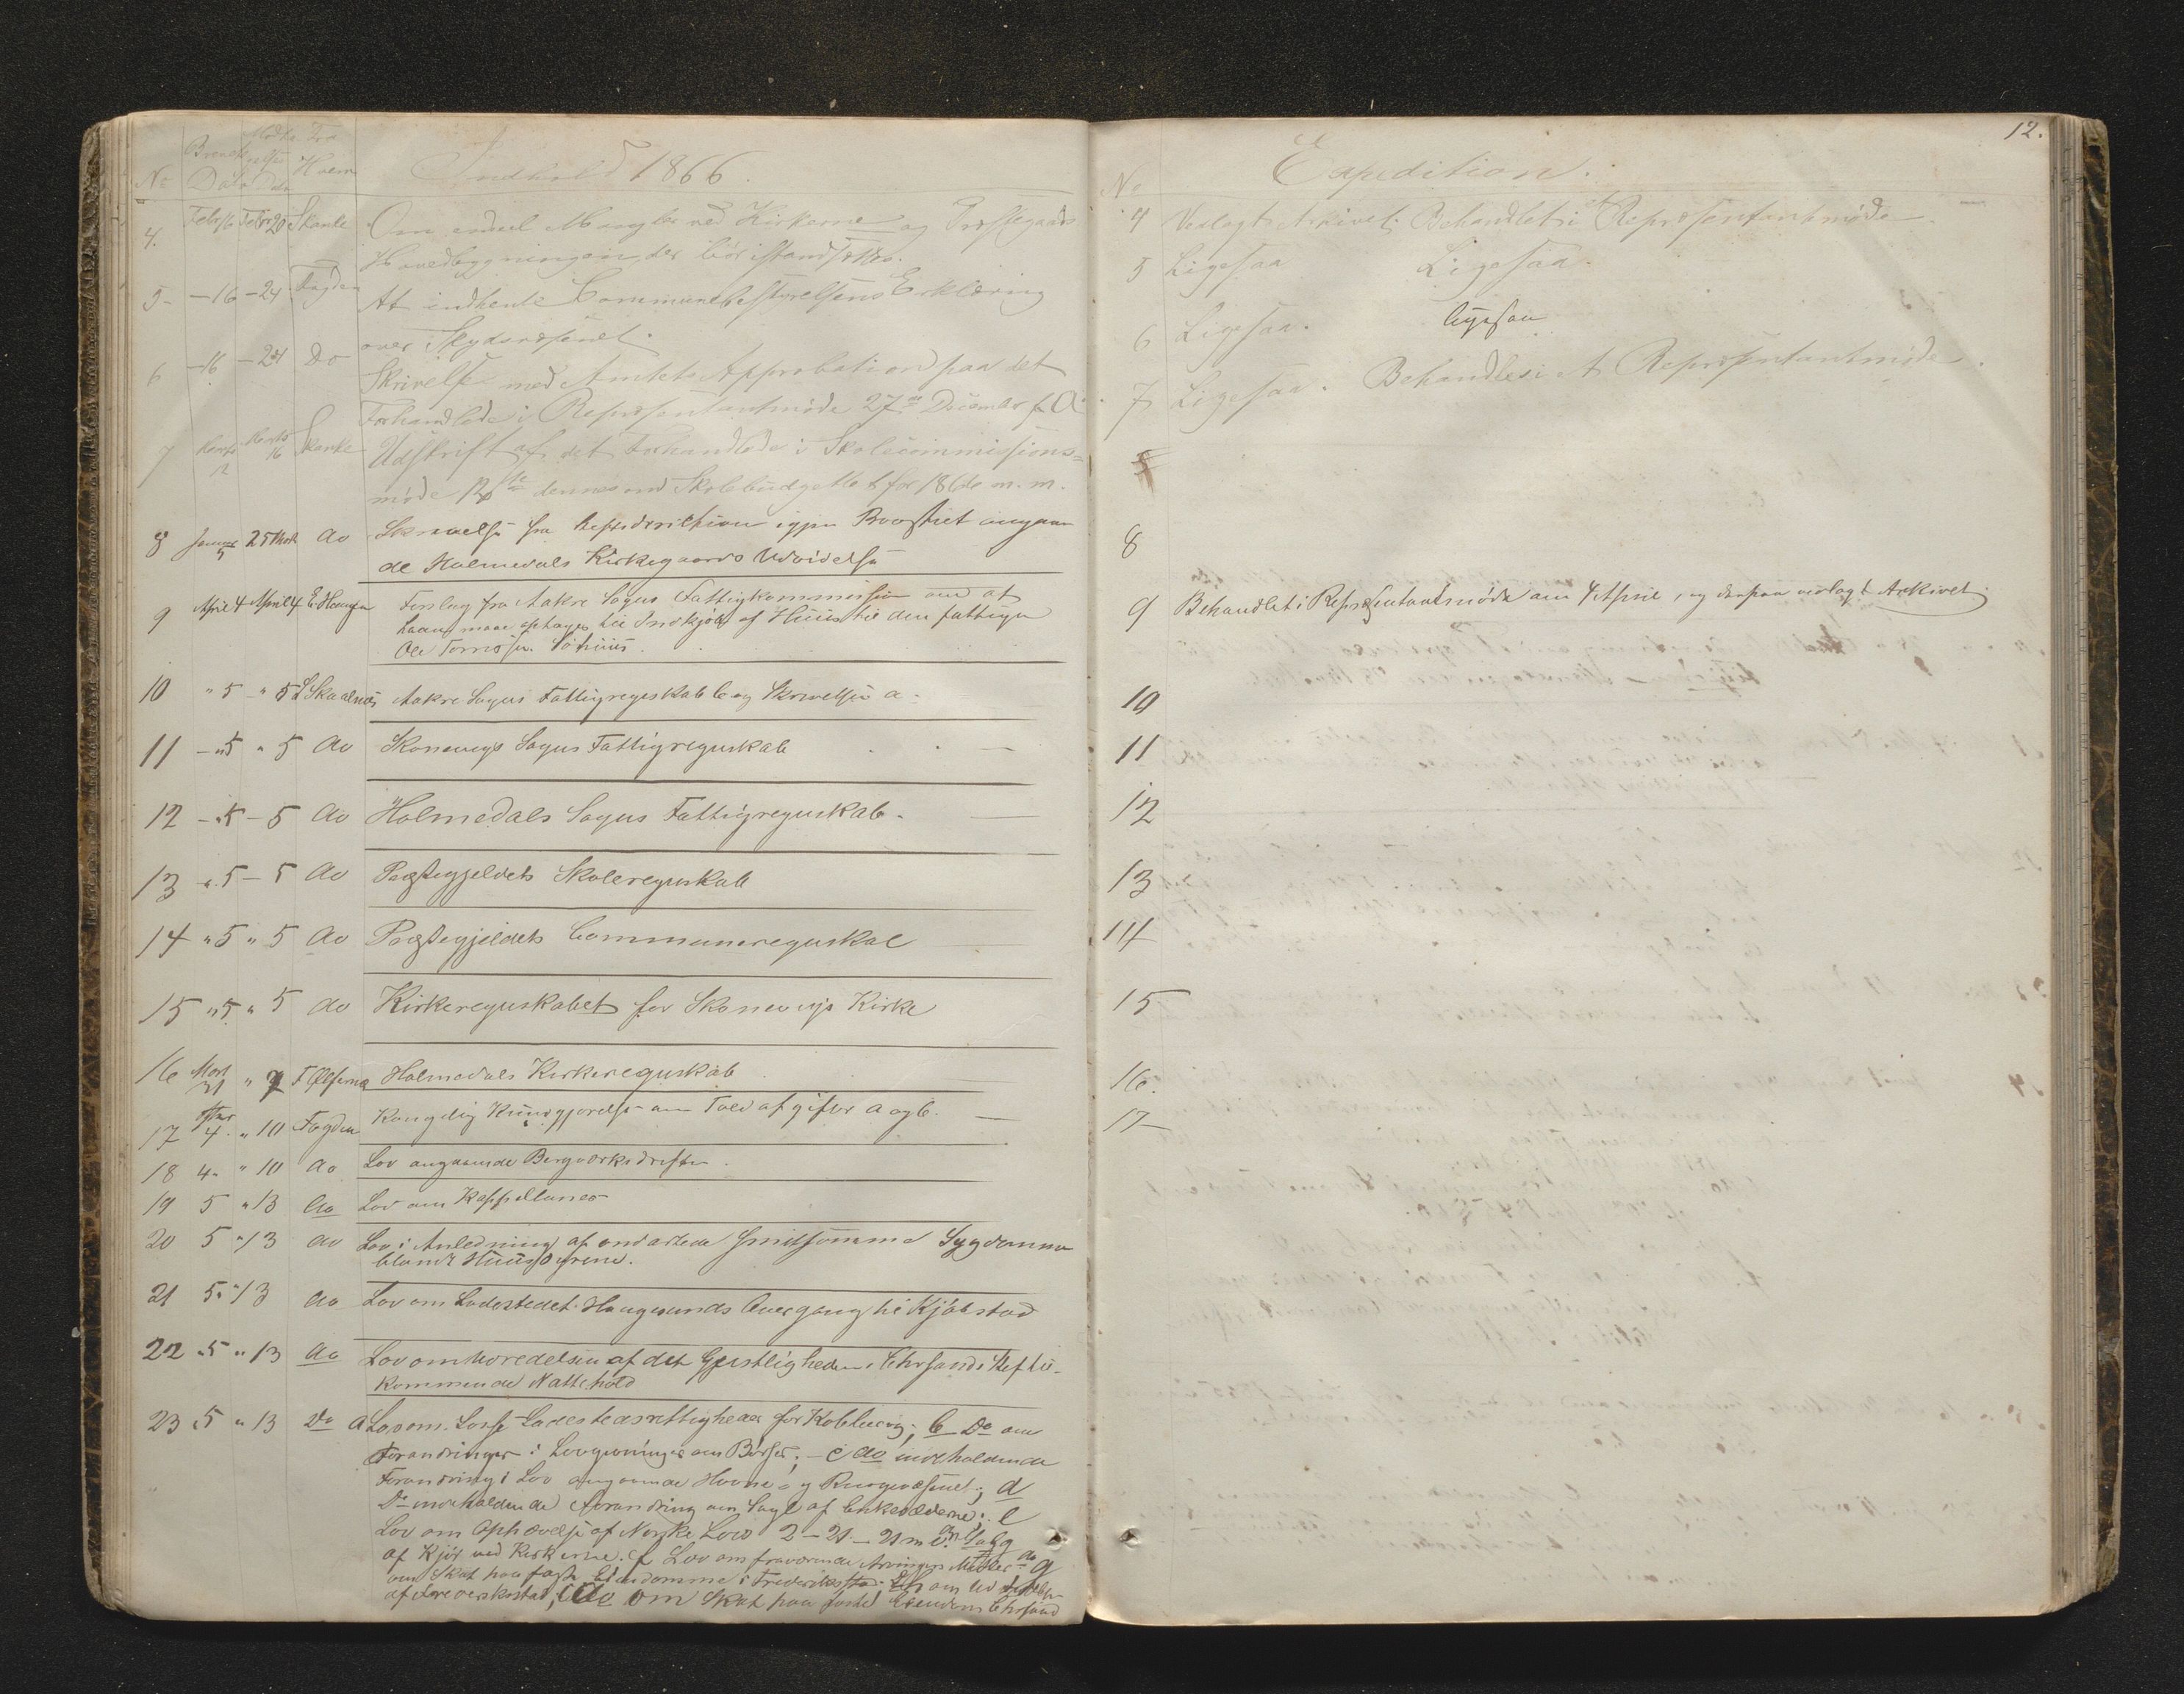 No Brevets Dato Modtagelses Dato Fra Hvem Indhold 1866.
4. Febr 16 Febr 20 Skanke Om endeel Mangler ved Kirkerne og Præstegaards
Hovedbygningen der bör istandsættes.
5 - 16 - 24 Fogden At indhente Communebestyrelsens Erklæring
over Skydsvæsenet.
6 - 16 - 24 Do Skrivelse med Amtets Approbation paa det
Forhandlede i Repræsentantmöde 27de December f. A.
7 Marts 12 Marts 16 Skanke Udskrift af det Forhandlede i Skolecommissions-
möde 12te dennes med Skolebudgettet for 1866 m. m.
8 25 do Skrivelse fra angaaen
de Holmedals Kirkegaards Udvidelse
9 April 4 April 4 Forslag fra Aakre Sogns Fattigkommission om at
Laan maa optages til Indkjöb af Huus til den fattige
Ole
10 " 5 " 5 Skaalnes Aakre Sogns Fattigregnskab b og Skrivelse a.
11 - " 5 " 5 do Skonevigs Sogns Fattigregnskab
12 - " 5 - 5 do Holmedals Sogns Fattigregnskab.
13 " 5 - 5 do Præstegjeldets Skoleregnskab
14 " 5 " 5 do Præstegjeldets Communeregnskab
15 " 5 " 5 do Kirkeregnskabet for Skonevigs Kirke
16 Mart 31 " 7 Holmedals Kirkeregnskab
17 4. " 10 Fogden Kongelig Kundgjörelse om Told afgifter a og b.
18 4. " 10 do Lov angaaende Bergværksdriften.
19 5 " 13 do Lov om Kappellaner
20 5 " 13 do Lov i Anledning af ondartede smitsomme Sygdomme
blandt Huusdyrene.
21 5 " 13 do Lov om Ladestedet Haugesunds Overgang til Kjöbstad
22 " 5 " 13 do Lov om af det Geistligheden i Chrsands Stift til-
kommende Nattehold
23 " 5 " 13 Do a Lov om Losse Ladestedsrettigheder for ; b Do om
Forandringer i Lovgivningen om Börser; - c do indeholdende
Forandring i Lov angaaende Havne og Ringevæsenet; d
Do indeholdende Forandring om Salg af Enkesæderne; e
Lov om Ophævelse af Norske Lovs 2-21-21 m
af ved Kirkerne. f Lov om fraværende Arvingers Midler do g
om Skat paa faste Eiendomme i Frederikstad om
af ; do om Skat paa faste Eiendom Chrsand
12.
No Expedition.
4 Vedlagt Arkivet. Behandlet i Repræsentantmöde.
5 Ligesaa Ligesaa.
6 Ligesaa. Ligesaa
7 Ligesaa. Behandles i Repræsentantmöde.
8
9 Behandlet i Repræsentantmöde den 4 April, og derpaa vedlagt Arkivet.
10
11
12
13
14
15
16.
17